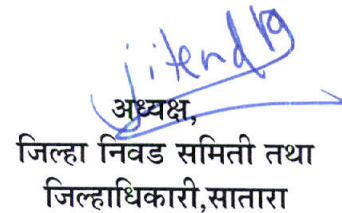 jitend
अध्यक्ष,
जिल्हा निवड समिती तथा
जिल्हाधिकारी,सातारा